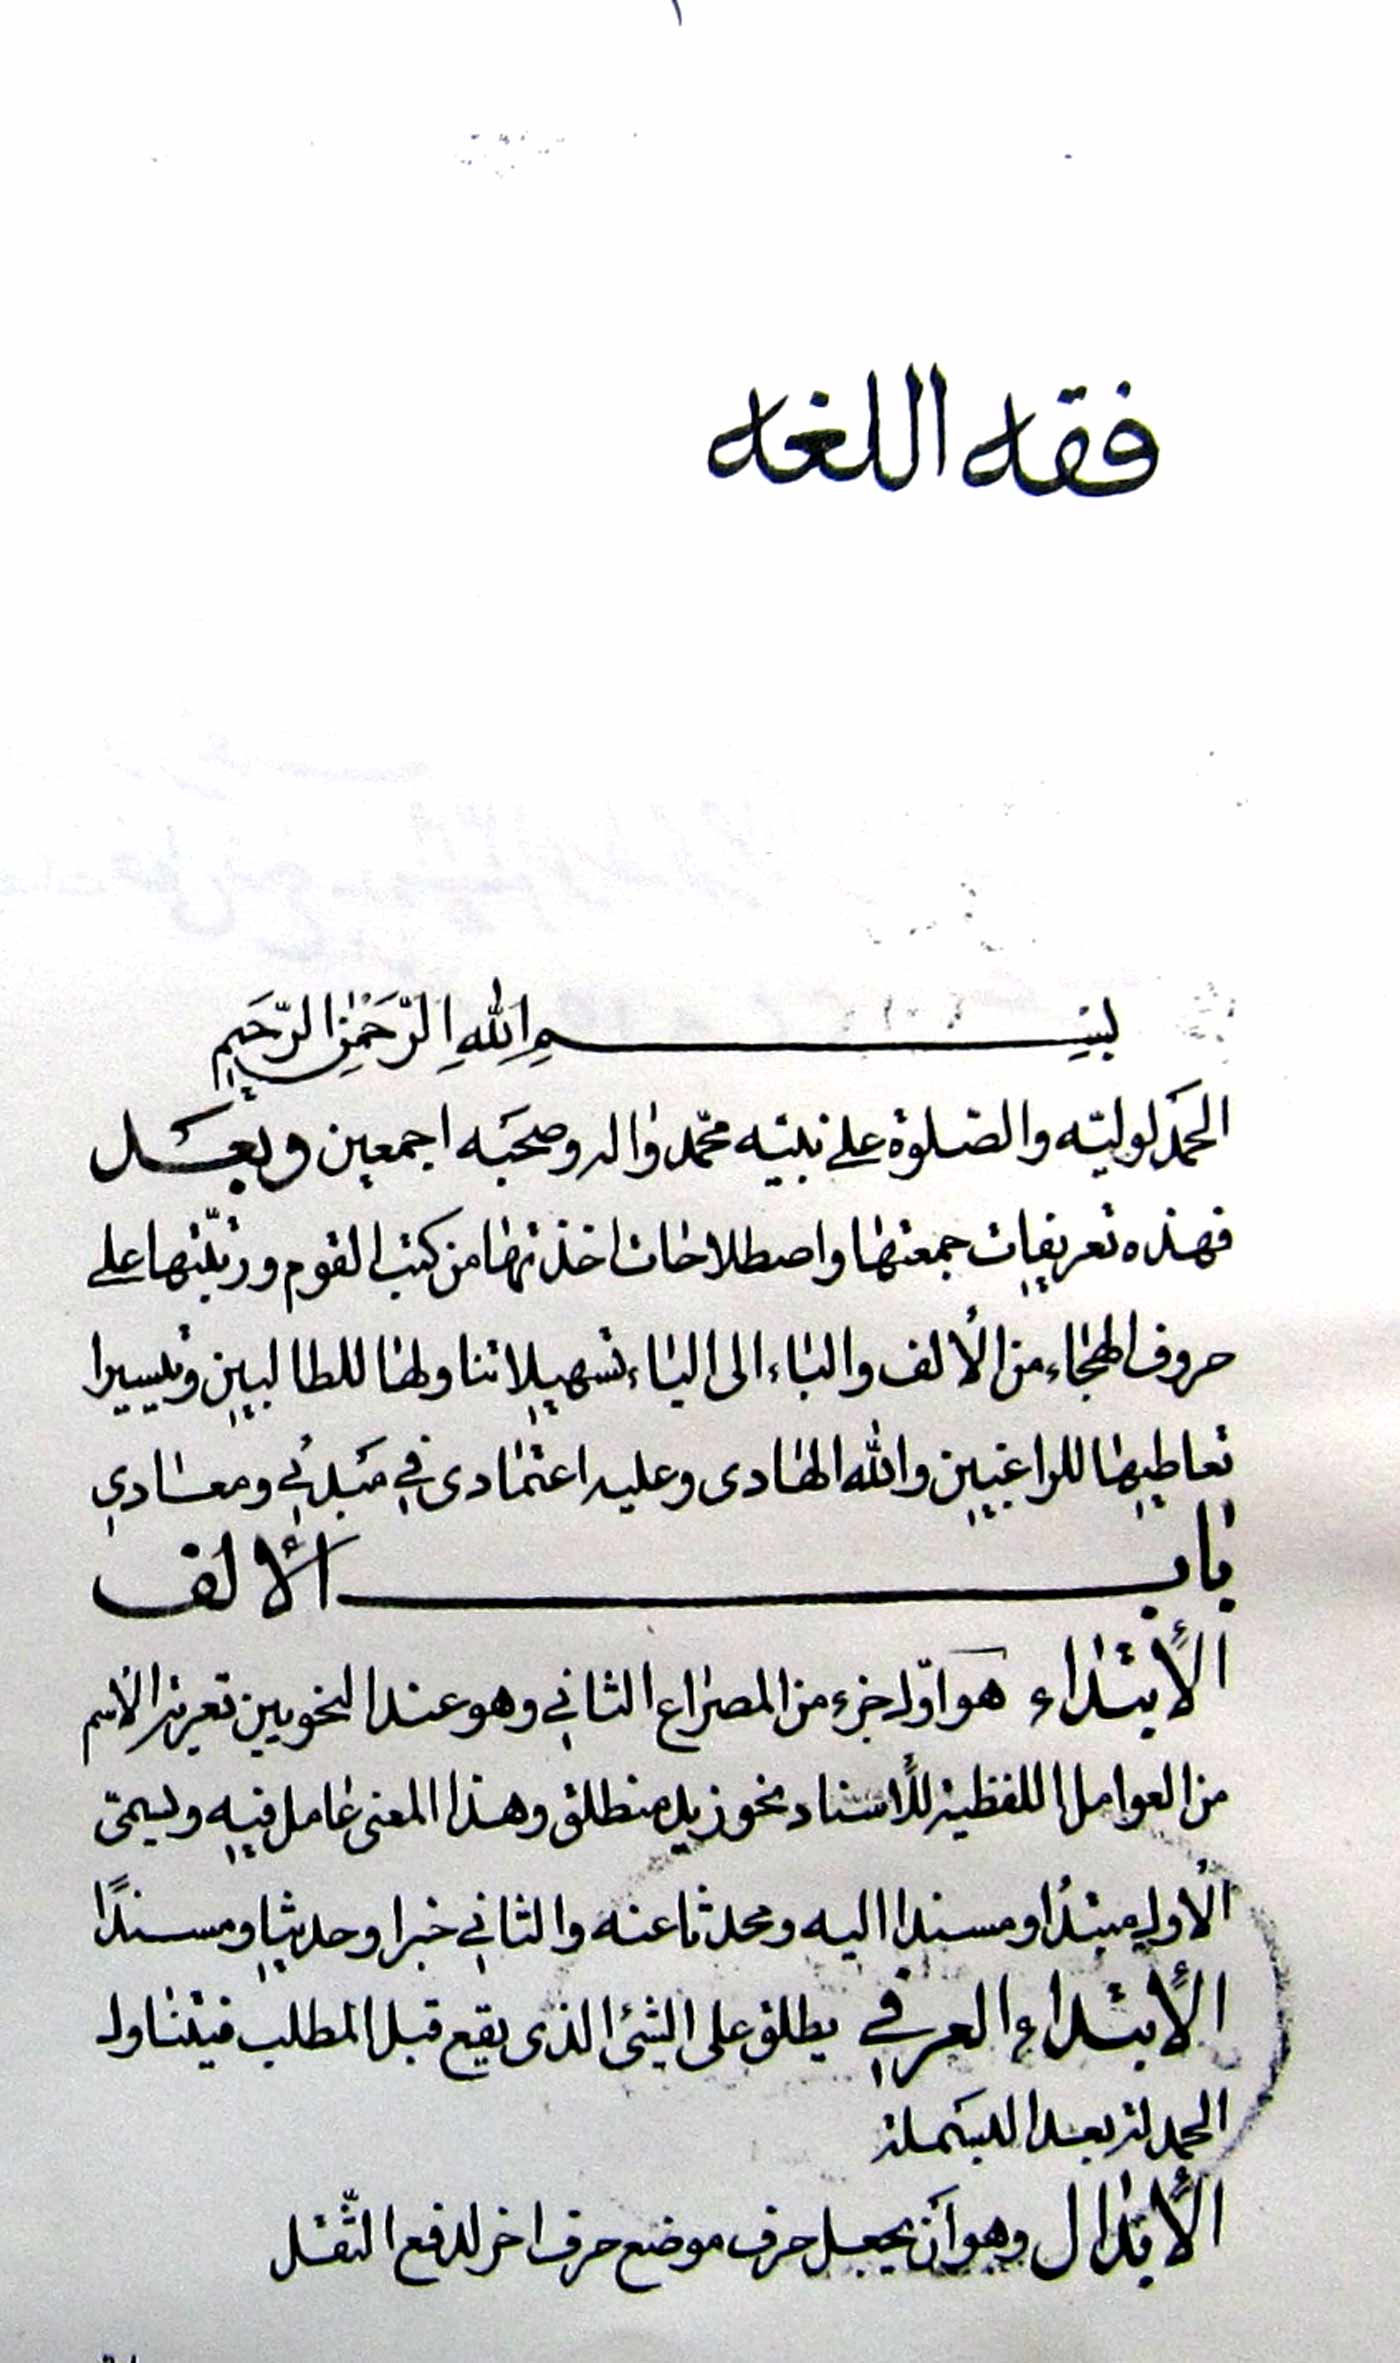 ١
فقه اللغه
بسم الله الرحمن الرحيم
الحمد لوليّه والصلوة على نبيّه محمّد واله وصحبه اجمعين وبعد
فهذه تعريفات جمعتها واصطلاحات اخذتها من كتب القوم ورتّبتها على
حروف الهجاء من الألف والباء الى الياء تسهيلا تناولها للطالبين وتيسيرا
تعاطيها للراغبين والله الهادى وعليه اعتمادى في مبدئي ومعادي
باب الألف
الأبتداء هو اوّل جزء من المصراع الثاني وهو عند النحويين تعرية الاسم
من العوامل اللفظية للأسناد نحو زيد منطلق وهذا المعنى عامل فيه ويسمّى
الأول مبتدأ ومسندا اليه ومحدثا عنه والثاني خبرا وحديثا ومسندًا
الأبتداء العرفي يطلق على الشئ الذى يقع قبل المطلب فيتناول
الحمدلة بعد البسملة
الأبدال وهو أن يجعل حرف موضع حرف اخر لدفع الثّقل